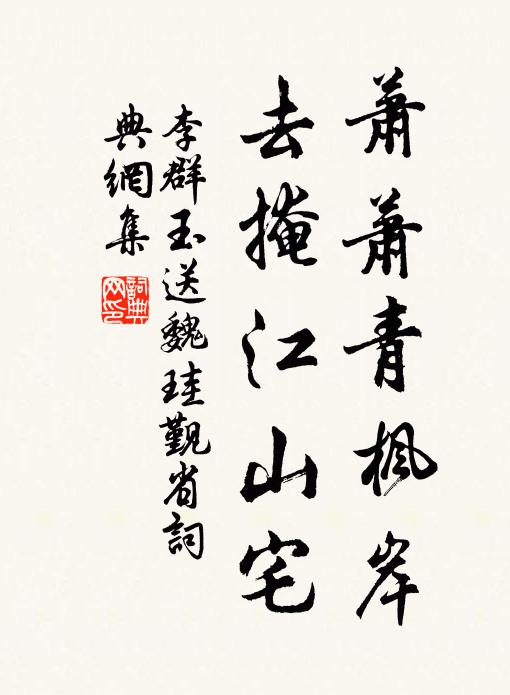 蕭蕭青楓岸
去掩江山宅
李群玉送魏珪覲省詞
典網集
詞典網印